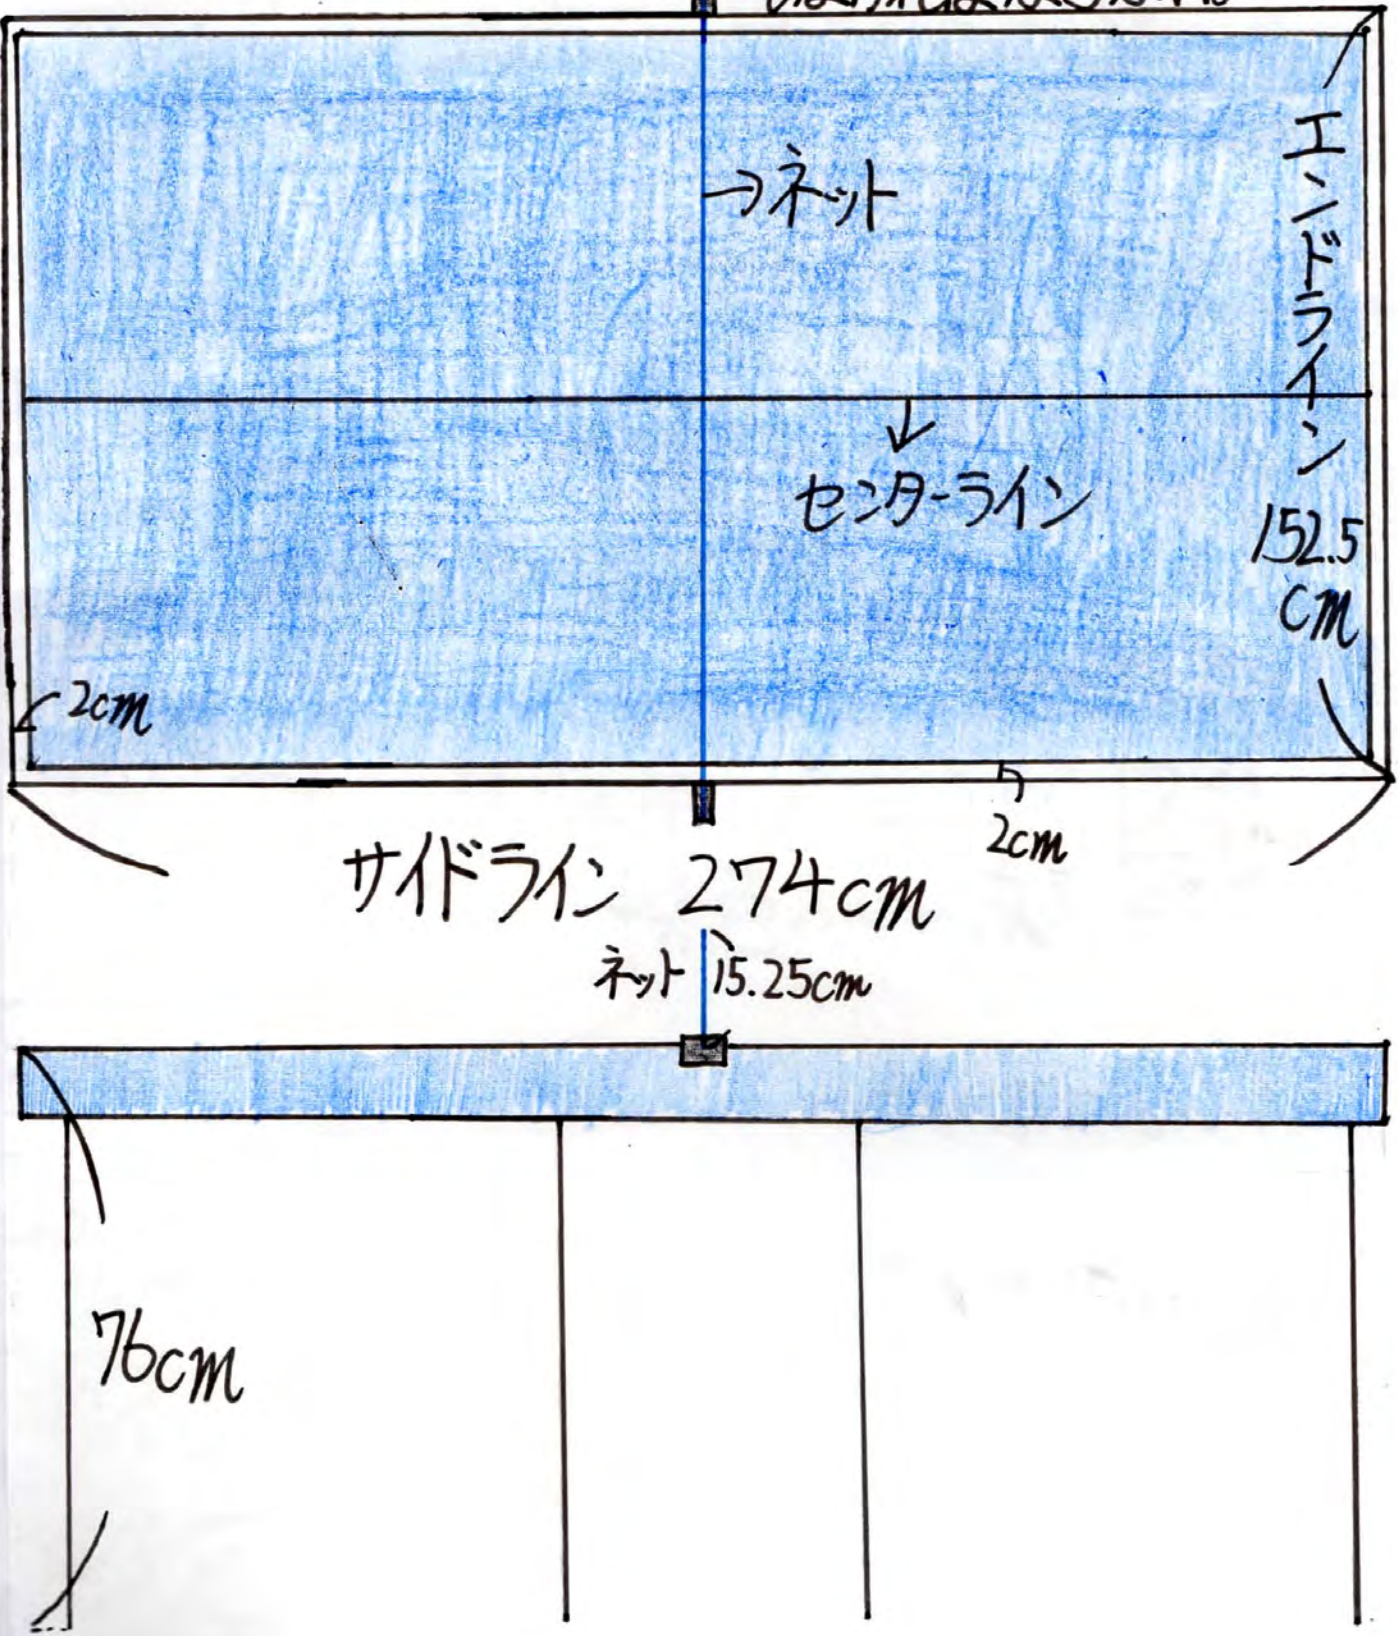 →ネット
エンドライン
152.5
cm
センターライン
2cm
2cm
サイドライン 274cm
ネット 15.25cm
76cm